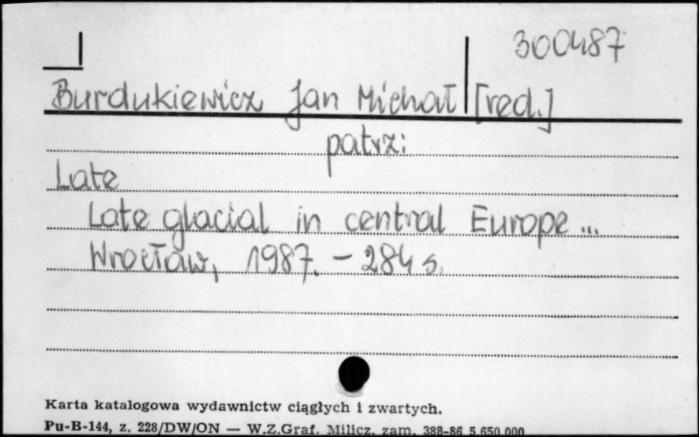 300487
Burdukiewicz Jan Michał [red.]
patrz:
Late
Late glacial in central Europe...
Wrocław, 1987. - 284 s.
Karta katalogowa wydawnictw ciągłych i zwartych.
Pu-B-144, z. 228/DW/ON — W.Z.Graf. Milicz, zam. 388-86 5.650.000